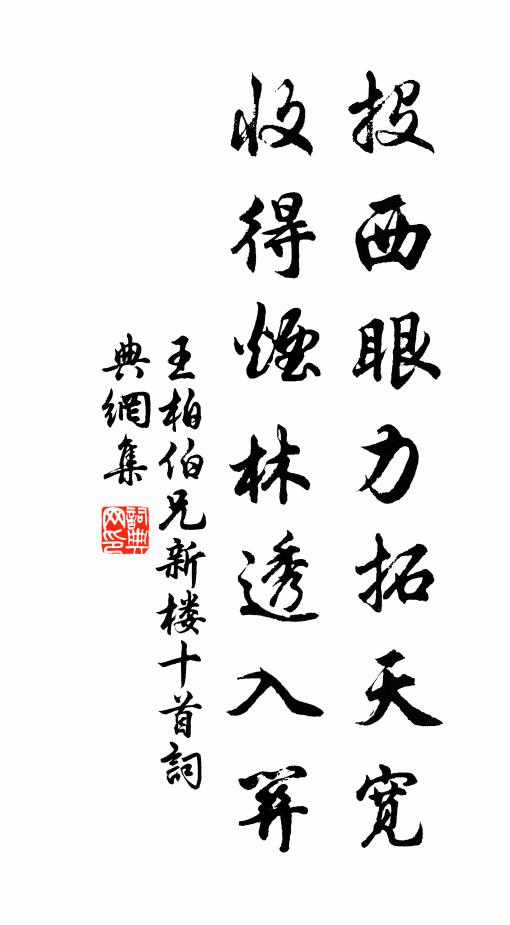 投西眼力拓天寬
收得煙林透入
王柏伯兄新楼十首詞
典網集
詞典
网印